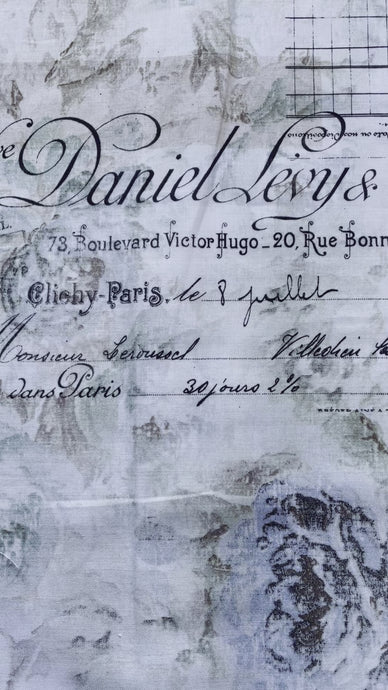 ve
Daniel Lévy &
L.
73, Boulevard Victor Hugo _ 20, Rue Bonn
Clichy-Paris, le 8 juillet
Monsieur Leroussel Villedieu
dans Paris 30 jours 2%